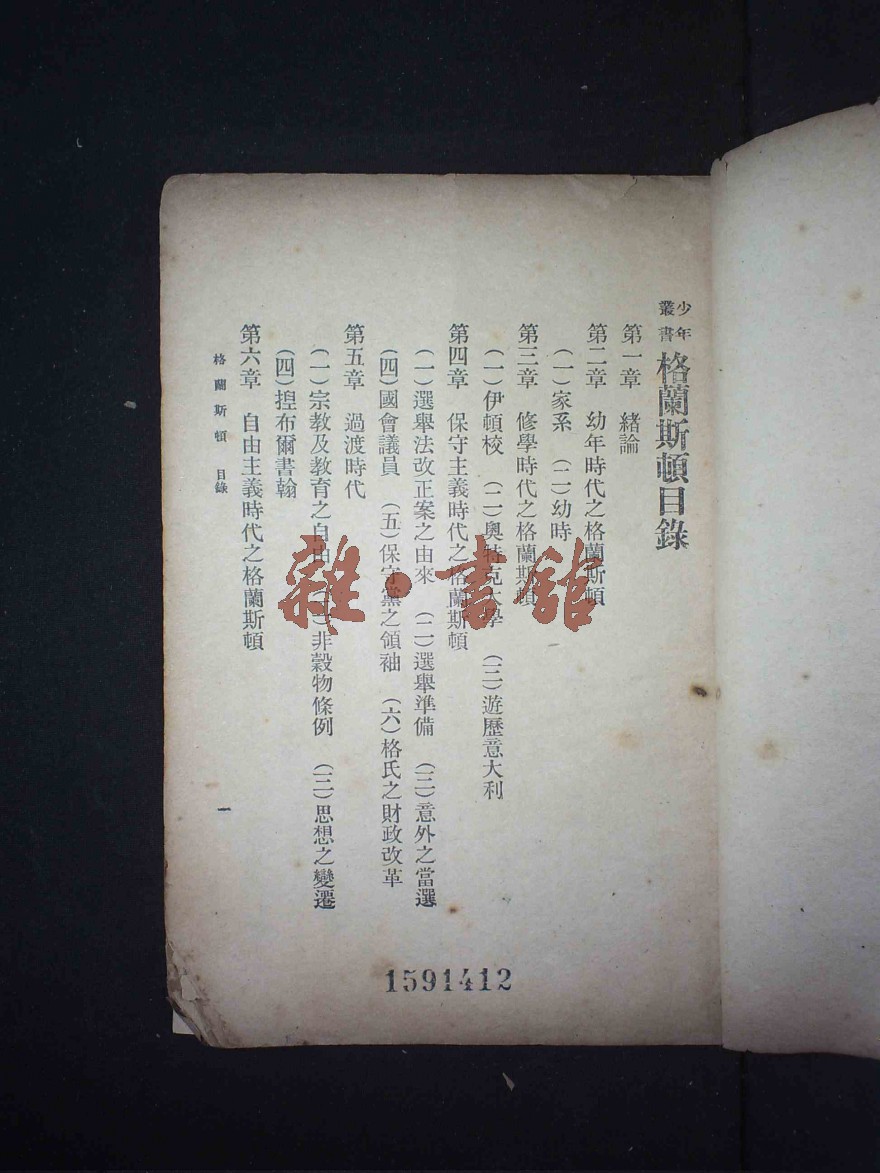 少年叢書 格蘭斯頓目錄
第一章 緒論
第二章 幼年時代之格蘭斯頓
(一)家系 (二)幼時
第三章 修學時代之格蘭斯頓
(一)伊頓校 (二)奧特克大學 (三)遊歷意大利
第四章 保守主義時代之格蘭斯頓
(一)選舉法改正案之由來 (二)選舉準備 (三)意外之當選
(四)國會議員 (五)保守黨之領袖 (六)格氏之財政改革
第五章 過渡時代
(一)宗教及教育之自由 (二)非穀物條例 (三)思想之變遷
(四)揑布爾書翰
第六章 自由主義時代之格蘭斯頓
格蘭斯頓 目錄
一
1591412
雜·書館